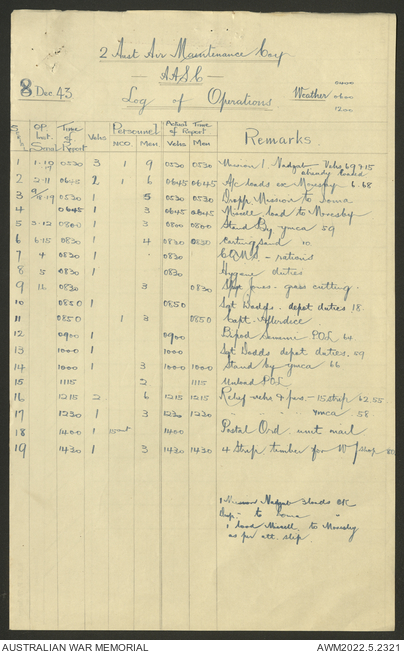 2 Aust Air Maintenance Coy
— AASC —
8 Dec 43 Log of Operations Weather 0400
0600
1200
Serial OP. Inst. Serial Time of Report Vehs Personnel NCO. Men Actual Time of Report Veh Men Remarks
1 1.10 0530 3 1 9 0530 0530 Mission 1. Nadzab Vehs 69.9.15
already loaded
2 2.11 0645 2 1 6 0645 0645 A/c loads ex Moresby 6.68
3 0530 1 5 0530 0530 Mission to
4 0645 1 3 0645 0645 load to Moresby
5 3.12 0800 1 3 0800 0800 Stand By ymca 59
6 6.15 0830 1 4 0830 0830 Carting sand 10
7 4 0830 1 0830 C.Q.M.S. - rations
8 5 0830 1 0830 Hygiene duties
9 16 0830 3 0830 grass cutting.
10 0850 1 0850 Sgt Dodds. depot duties 18
11 0850 1 3 0850 Capt. Allardice
12 0900 1 0900 P.O.L 64
13 1000 1 1000 Sgt Dodds depot duties. 59
14 1000 1 3 1000 1000 Stand by ymca 66
15 1115 2 1115 Unload P.O.L
16 1215 2 6 1215 1215 Relief vehs & pers. - 15 strip 62.55
17 1230 1 3 1230 1230 " " " ymca. 58
18 1400 1 1400 Postal Ord. unit mail
19 1430 1 3 1430 1430 4 Strip timber for
1 Mission Nadzab 3 loads
to
1 load to Moresby
as per att. slip.
AUSTRALIAN WAR MEMORIAL AWM2022.5.2321